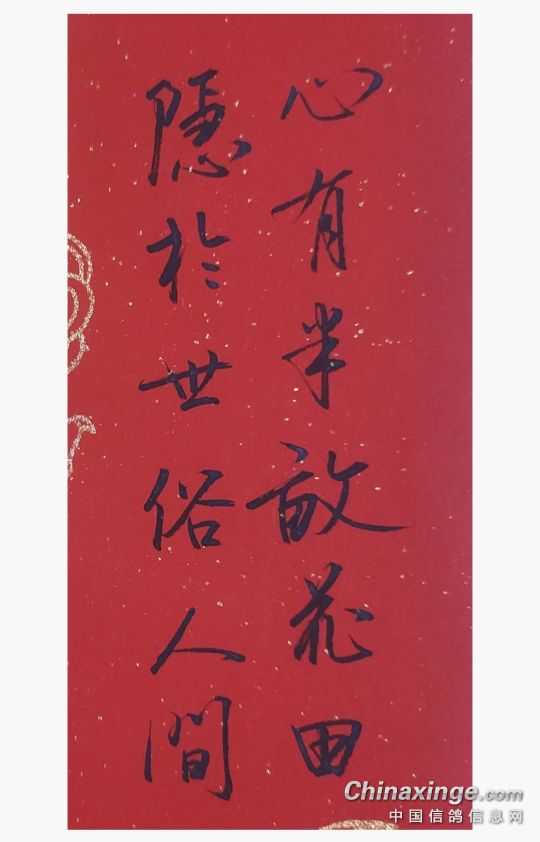 心有半畝花田
隱於世俗人間
Chinaxinge.com
中国信鸽信息网